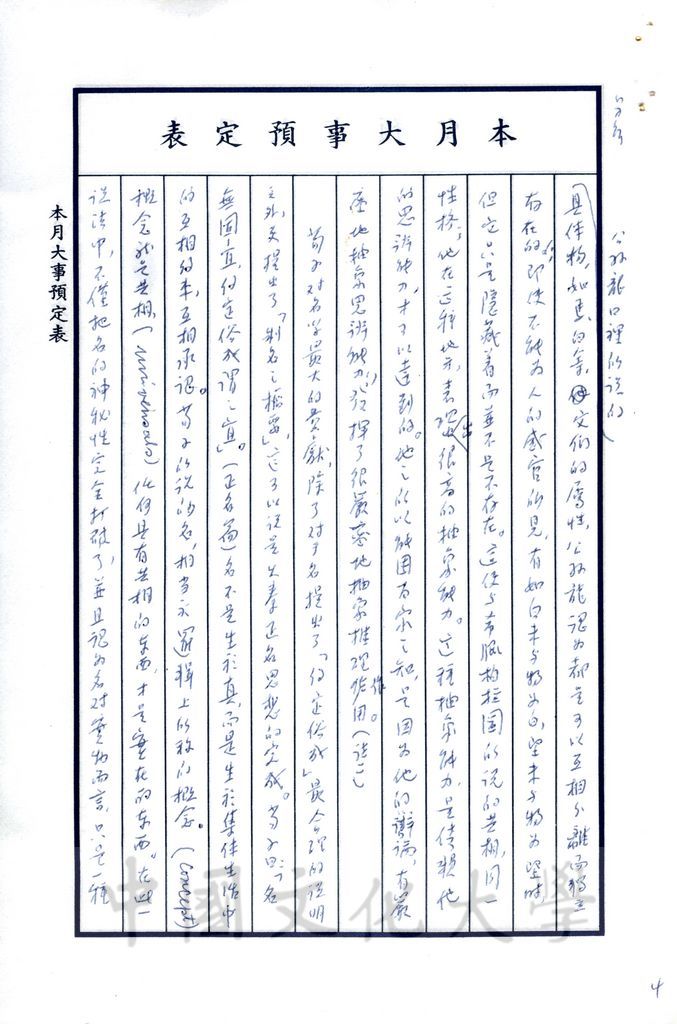 本月大事預定表
本月大事預定表
公孫龍口裡所說的
具体物,如馬、白等,及它们的屬性,公孫龍認为都是可以互相分離而獨立
存在的,即使不能为人的感官所見,有如白未与物为白,堅未与物为堅時,
但它只是隱藏着而並不是不存在。這便与希臘柏拉圖所說的共相,同一
性格;他在這種地方,表現出很高的抽象能力。這種抽象能力,是信賴他
的思辨能力,才可以達到的。他之所以能困百家之知,是因为他的辯論,有嚴
密地抽象思辨能力,發揮了很嚴密地抽象推理作用。(註二)
荀子对名学最大的貢獻,除了对于名提出了「約定俗成」最合理的說明
之外,更提出了「制名之樞要」,這可以說是先秦正名思想的完成。荀子以「名
無固宜,約定俗成謂之宜」。(正名篇)名不是生於真,而是生於集体生活中
的互相約束,互相承認。荀子所說的名,相当於邏輯上所称的概念。(Concept)
概念就是共相,() 任何具有共相的东西才是實在的东西。在此一
說法中,不僅把名的神秘性完全打破了,並且認为名对實物而言,只是一種
中國文化大學
4